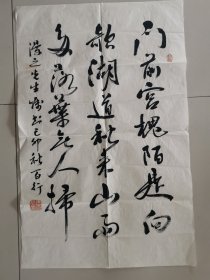 门前宫槐陌是向
欹湖道秋来山雨
多落叶无人扫
己卯秋百行